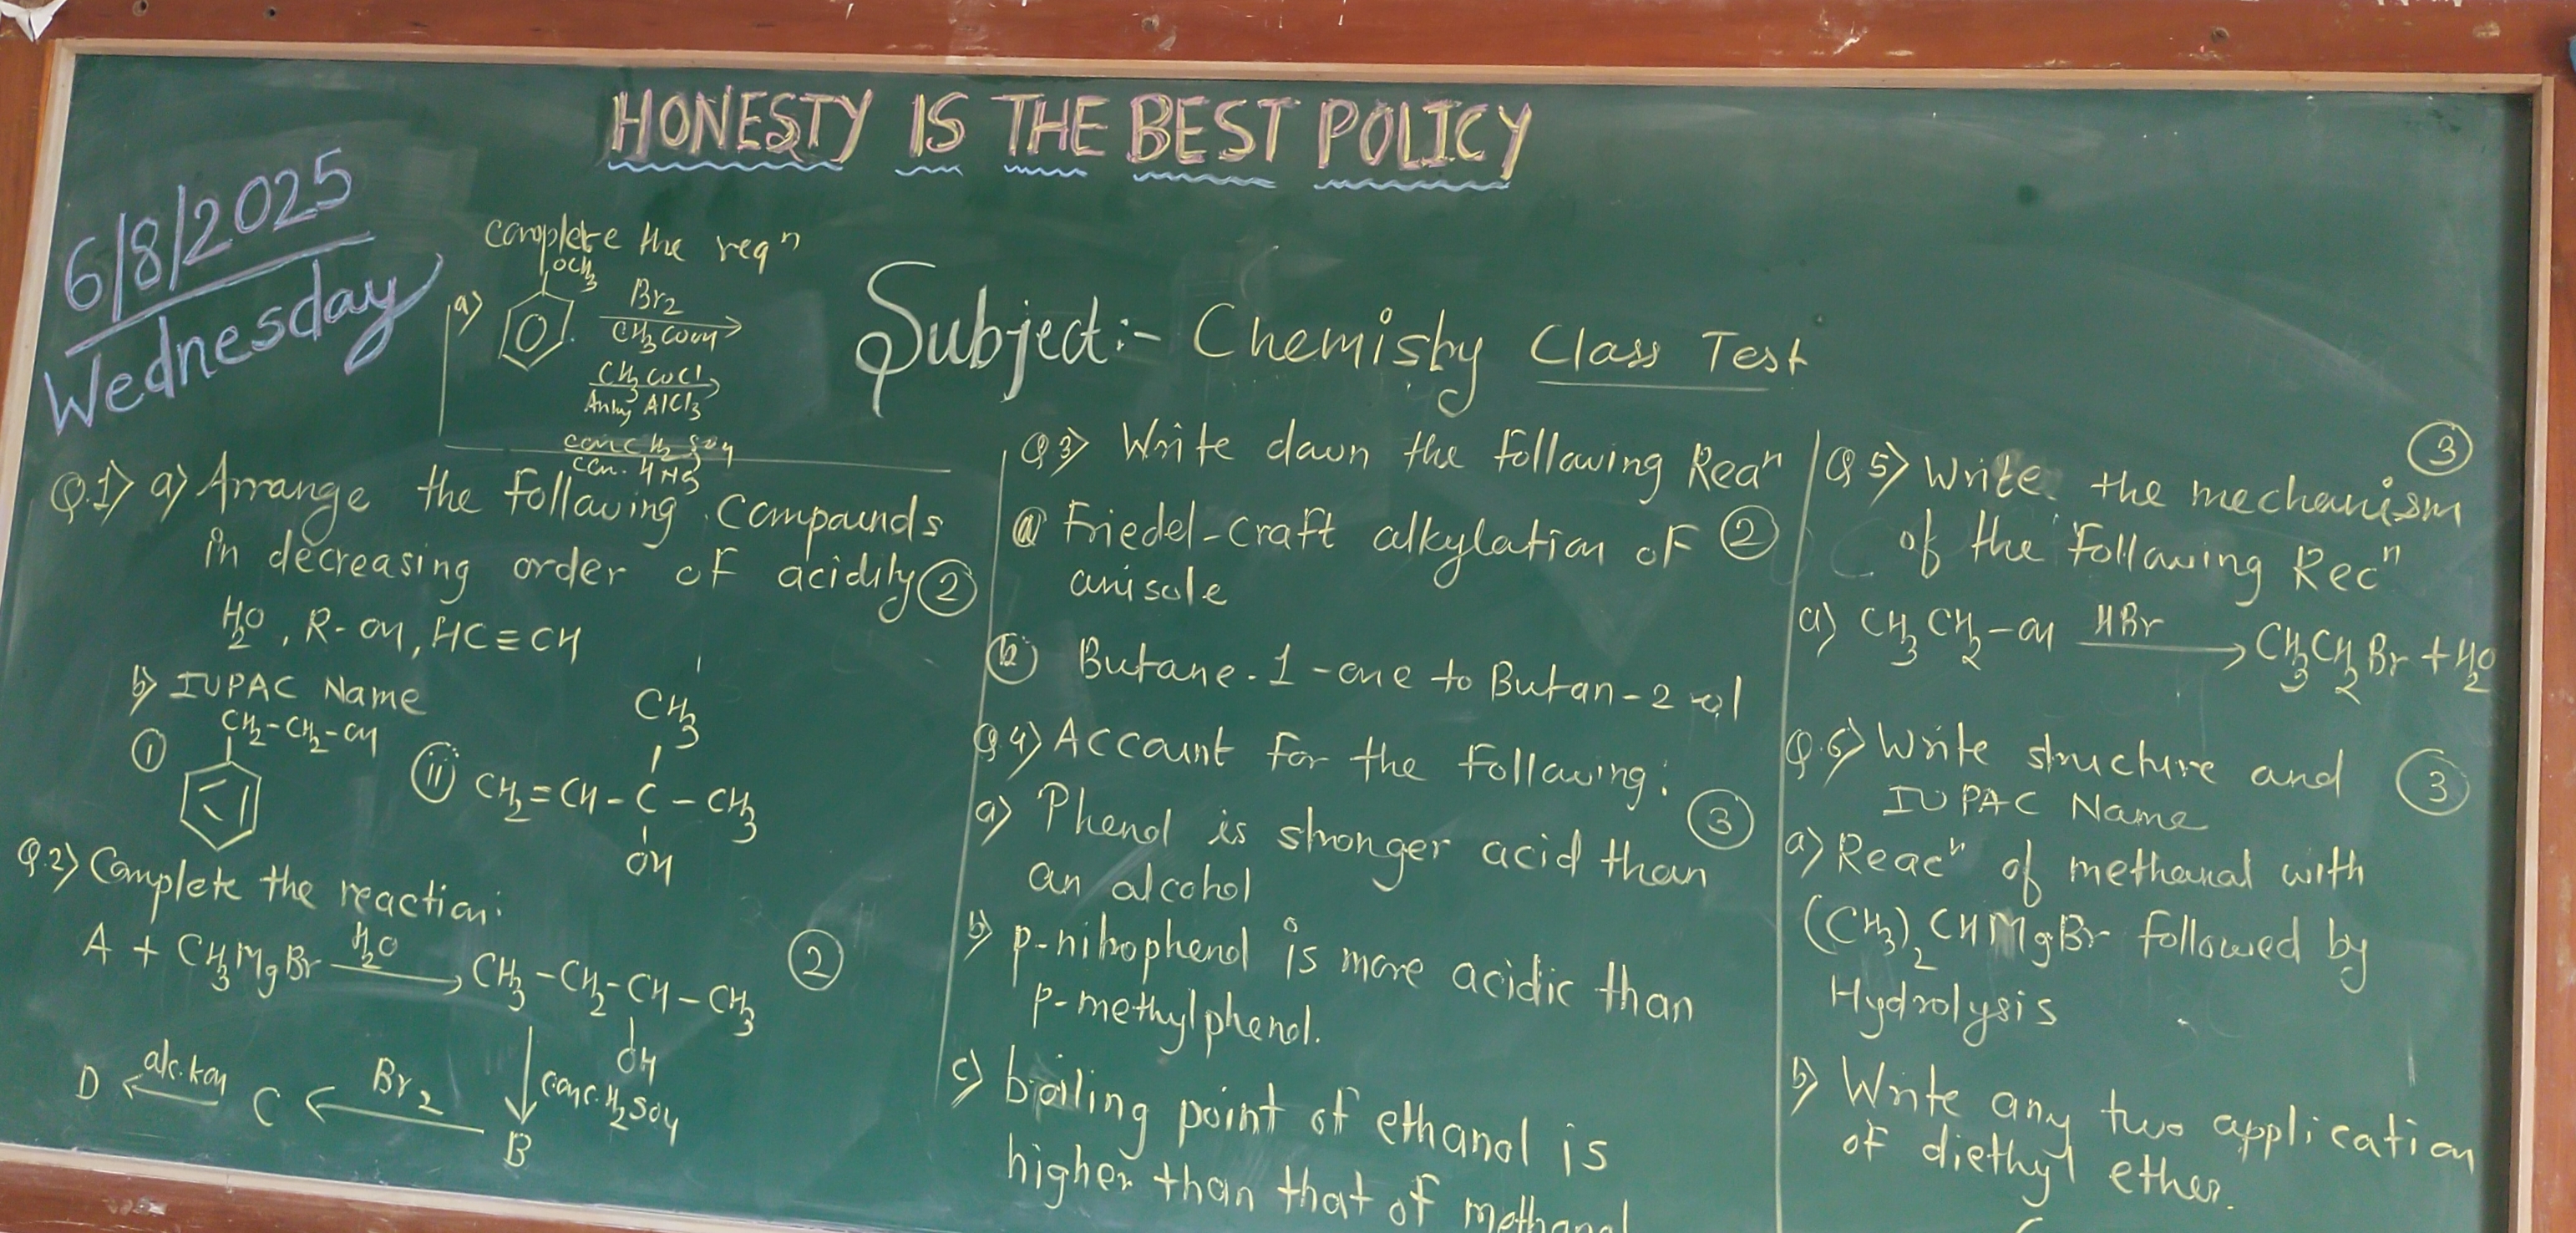 HONESTY IS THE BEST POLICY
6/8/2025
Wednesday
complete the reqn
OCH3
a) Br2
CH3COOH
CH3COCl
Anhy AlCl3
conc H2SO4
con. HNO3
Subject:- Chemistry Class Test
Q.1) a) Arrange the following compounds
in decreasing order of acidity (2)
H2O, R-OH, HC≡CH
b) IUPAC Name
(i) CH2-CH2-OH
CH3
(ii) CH2=CH-C-CH3
OH
Q.2) Complete the reaction:
A + CH3MgBr H2O → CH3-CH2-CH-CH3 (2)
OH
conc. H2SO4
D ← alc. KOH C ← Br2 B
Q3) Write down the following Rean
(a) Friedel-craft alkylation of (2)
anisole
(b) Butane-1-one to Butan-2-ol
Q4) Account for the following:
a) Phenol is stronger acid than (3)
an alcohol
b) p-nitrophenol is more acidic than
p-methylphenol.
c) boiling point of ethanol is
higher than that of methanol
(3)
Q5) Write the mechanism
of the following Recn
a) CH3CH2-OH HBr → CH3CH2Br + H2O
Q.6) Write structure and (3)
IUPAC Name
a) Reacn of methanal with
(CH3)2CHMgBr followed by
Hydrolysis
b) Write any two application
of diethyl ether.